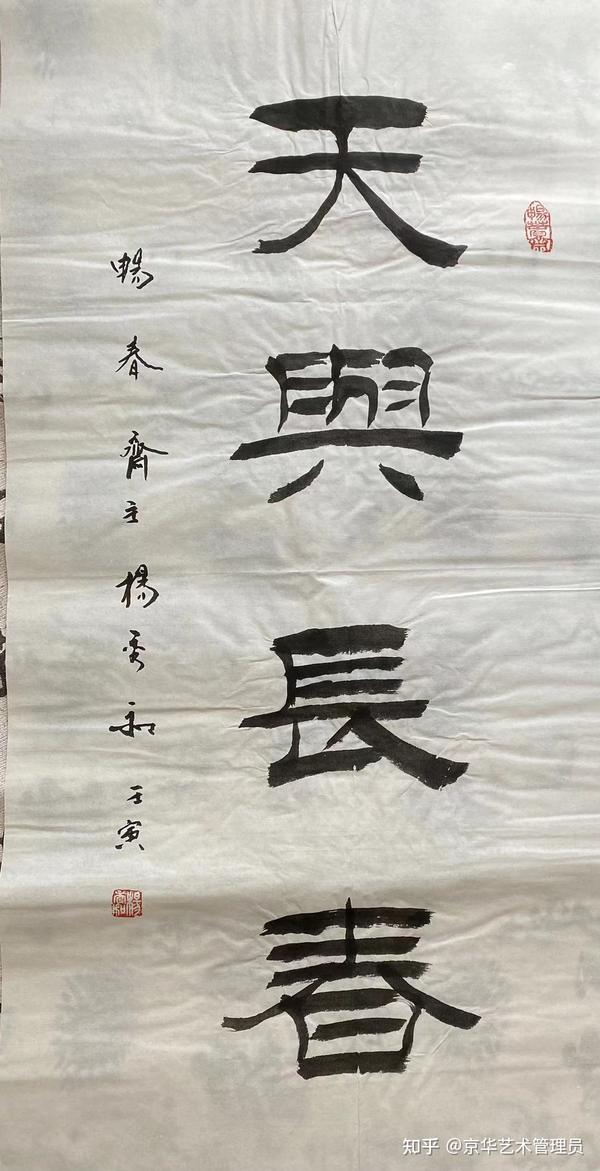 天與長春
暢春齋主楊秀和 壬寅
知乎 @京华艺术管理员